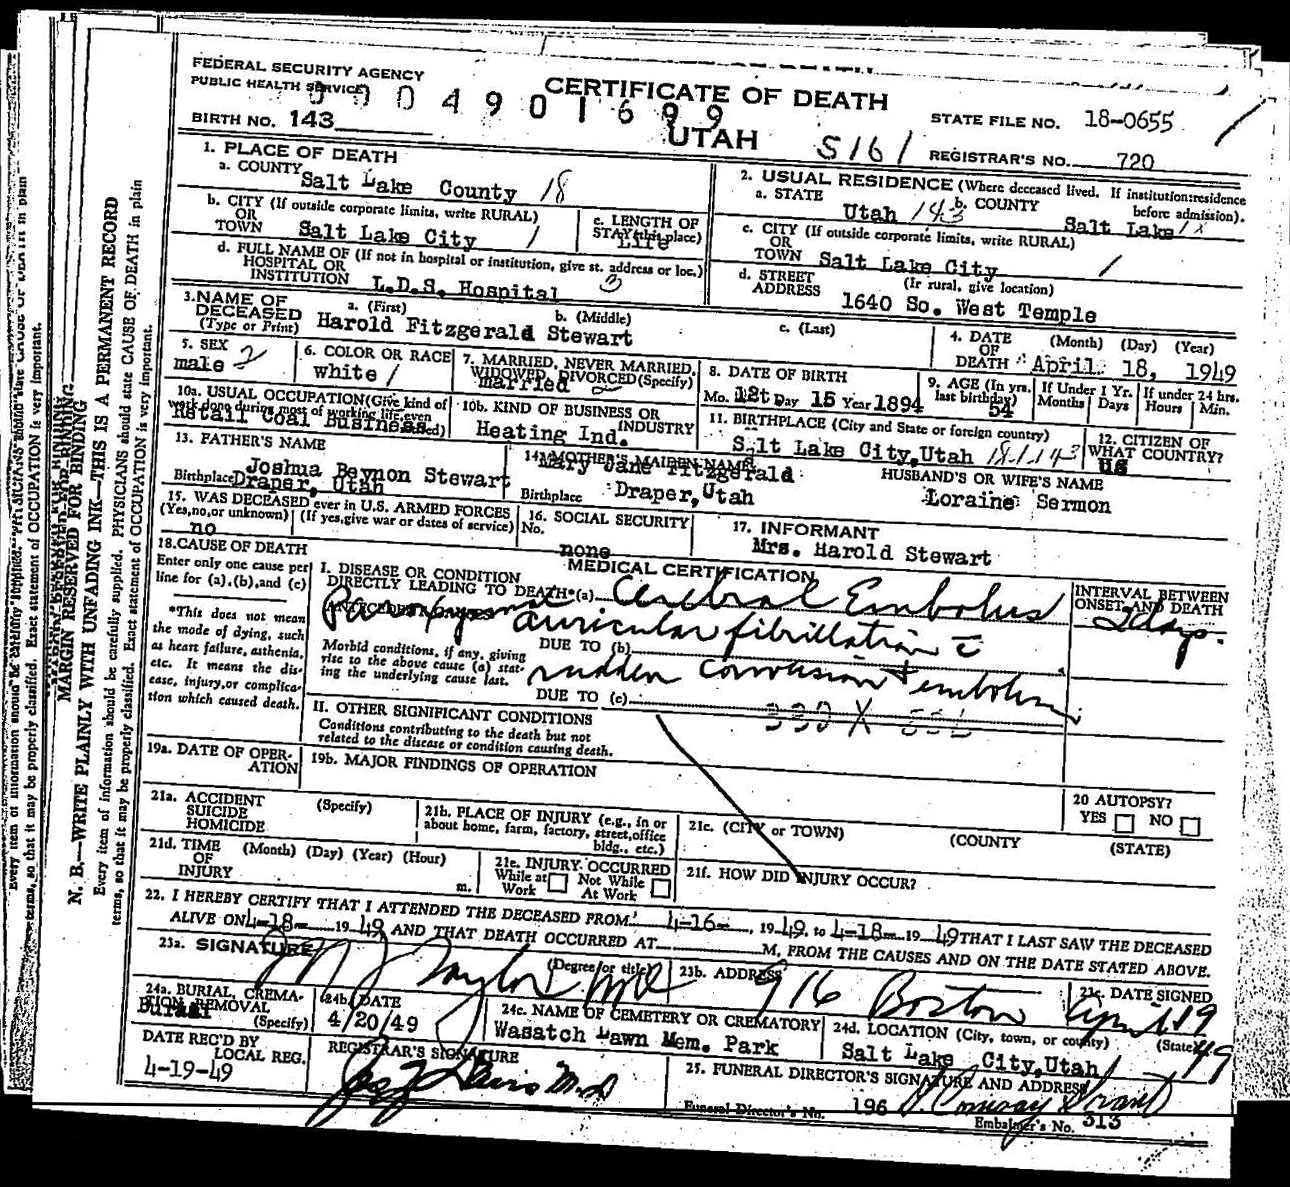 FEDERAL SECURITY AGENCY
PUBLIC HEALTH SERVICE
CERTIFICATE OF DEATH
UTAH
STATE FILE NO. 18-0655
0 0 0 4 9 0 1 6 9 9
BIRTH NO. 143
S161
REGISTRAR'S NO. 720
1. PLACE OF DEATH
a. COUNTY Salt Lake County 18
2. USUAL RESIDENCE (Where deceased lived. If institution:residence before admission).
a. STATE Utah 143 b. COUNTY Salt Lake
b. CITY (If outside corporate limits, write RURAL)
OR
TOWN Salt Lake City 1
c. LENGTH OF
STAY (in this place)
Life
c. CITY (If outside corporate limits, write RURAL)
OR
TOWN Salt Lake City 1
d. FULL NAME OF (If not in hospital or institution, give st. address or loc.)
HOSPITAL OR
INSTITUTION L.D.S. Hospital 3
d. STREET (If rural, give location)
ADDRESS 1640 So. West Temple
3. NAME OF a. (First) b. (Middle) c. (Last)
DECEASED
(Type or Print) Harold Fitzgerald Stewart
4. DATE (Month) (Day) (Year)
OF
DEATH April 18, 1949
5. SEX
male 2
6. COLOR OR RACE
white 1
7. MARRIED, NEVER MARRIED,
WIDOWED, DIVORCED (Specify)
married 2
8. DATE OF BIRTH
Mo. 12t Day 15 Year 1894
9. AGE (In yrs. last birthday)
54
If Under 1 Yr. Months Days
If under 24 hrs. Hours Min.
10a. USUAL OCCUPATION (Give kind of
work done during most of working life, even
Retail Coal Business
10b. KIND OF BUSINESS OR
INDUSTRY
Heating Ind.
11. BIRTHPLACE (City and State or foreign country)
Salt Lake City, Utah 18.1.143
12. CITIZEN OF
WHAT COUNTRY?
US
13. FATHER'S NAME
Joshua Beynon Stewart
Birthplace Draper, Utah
14a. MOTHER'S MAIDEN NAME
Mary Jane Fitzgerald
Birthplace Draper, Utah
HUSBAND'S OR WIFE'S NAME
Loraine Sermon
15. WAS DECEASED ever in U.S. ARMED FORCES
(Yes,no,or unknown) (If yes,give war or dates of service)
no
16. SOCIAL SECURITY
No.
none
17. INFORMANT
Mrs. Harold Stewart
18. CAUSE OF DEATH
Enter only one cause per
line for (a).(b),and (c)
*This does not mean
the mode of dying, such
as heart failure, asthenia,
etc. It means the dis-
ease, injury,or complica-
tion which caused death.
MEDICAL CERTIFICATION
I. DISEASE OR CONDITION
DIRECTLY LEADING TO DEATH*(a) Cerebral Embolus
INTERVAL BETWEEN
ONSET AND DEATH
2 days.
ANTECEDENT CAUSES
Paroxysmal auricular fibrillation c̄
Morbid conditions, if any, giving
rise to the above cause (a) stat-
ing the underlying cause last.
DUE TO (b)
sudden conversion + embolism
DUE TO (c)
II. OTHER SIGNIFICANT CONDITIONS
Conditions contributing to the death but not
related to the disease or condition causing death.
19a. DATE OF OPER-
ATION
19b. MAJOR FINDINGS OF OPERATION
20 AUTOPSY?
YES NO
21a. ACCIDENT (Specify)
SUICIDE
HOMICIDE
21b. PLACE OF INJURY (e.g., in or
about home, farm, factory, street,office
bldg., etc.)
21c. (CITY or TOWN) (COUNTY) (STATE)
21d. TIME (Month) (Day) (Year) (Hour)
OF
INJURY m.
21e. INJURY OCCURRED
While at Work Not While At Work
21f. HOW DID INJURY OCCUR?
22. I HEREBY CERTIFY THAT I ATTENDED THE DECEASED FROM 4-16-, 1949, to 4-18- 1949 THAT I LAST SAW THE DECEASED
ALIVE ON 4-18- 1949 AND THAT DEATH OCCURRED AT M, FROM THE CAUSES AND ON THE DATE STATED ABOVE.
23a. SIGNATURE (Degree or title)
Taylor MD
23b. ADDRESS
916 Boston
23c. DATE SIGNED
April 19 49
24a. BURIAL, CREMA-
TION, REMOVAL
(Specify)
Burial
24b. DATE
4/20/49
24c. NAME OF CEMETERY OR CREMATORY
Wasatch Lawn Mem. Park
24d. LOCATION (City, town, or county) (State)
Salt Lake City, Utah
DATE REC'D BY
LOCAL REG.
4-19-49
REGISTRAR'S SIGNATURE
25. FUNERAL DIRECTOR'S SIGNATURE AND ADDRESS
Funeral Director's No. 196
Embalmer's No. 313
MARGIN RESERVED FOR BINDING
N. B.—WRITE PLAINLY WITH UNFADING INK—THIS IS A PERMANENT RECORD
Every item of information should be carefully supplied. PHYSICIANS should state CAUSE OF DEATH in plain
terms, so that it may be properly classified. Exact statement of OCCUPATION is very important.